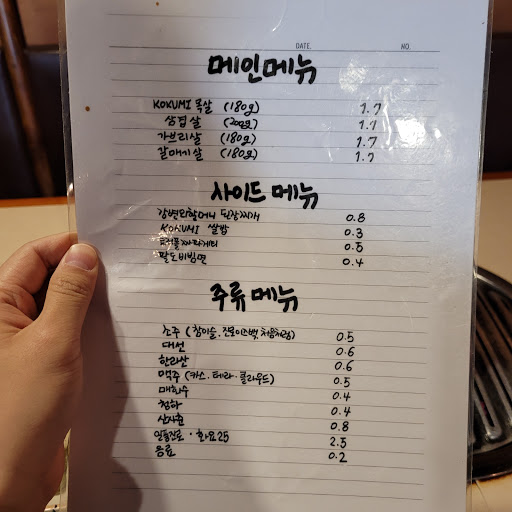 DATE. NO.
메인메뉴
KOKUMI 목살 (180g) 1.7
삼겹살 (200g) 1.7
가브리살 (180g) 1.7
갈매기살 (180g) 1.7
사이드 메뉴
강변외할머니 된장찌개 0.8
KOKUMI 쌀밥 0.3
트러플짜파게티 0.5
팔도비빔면 0.4
주류 메뉴
소주 (참이슬, 진로이즈백, 처음처럼) 0.5
대선 0.6
한라산 0.6
맥주 (카스, 테라, 클라우드) 0.5
매화수 0.4
청하 0.4
산사춘 0.8
일품진로 · 화요25 2.5
음료 0.2